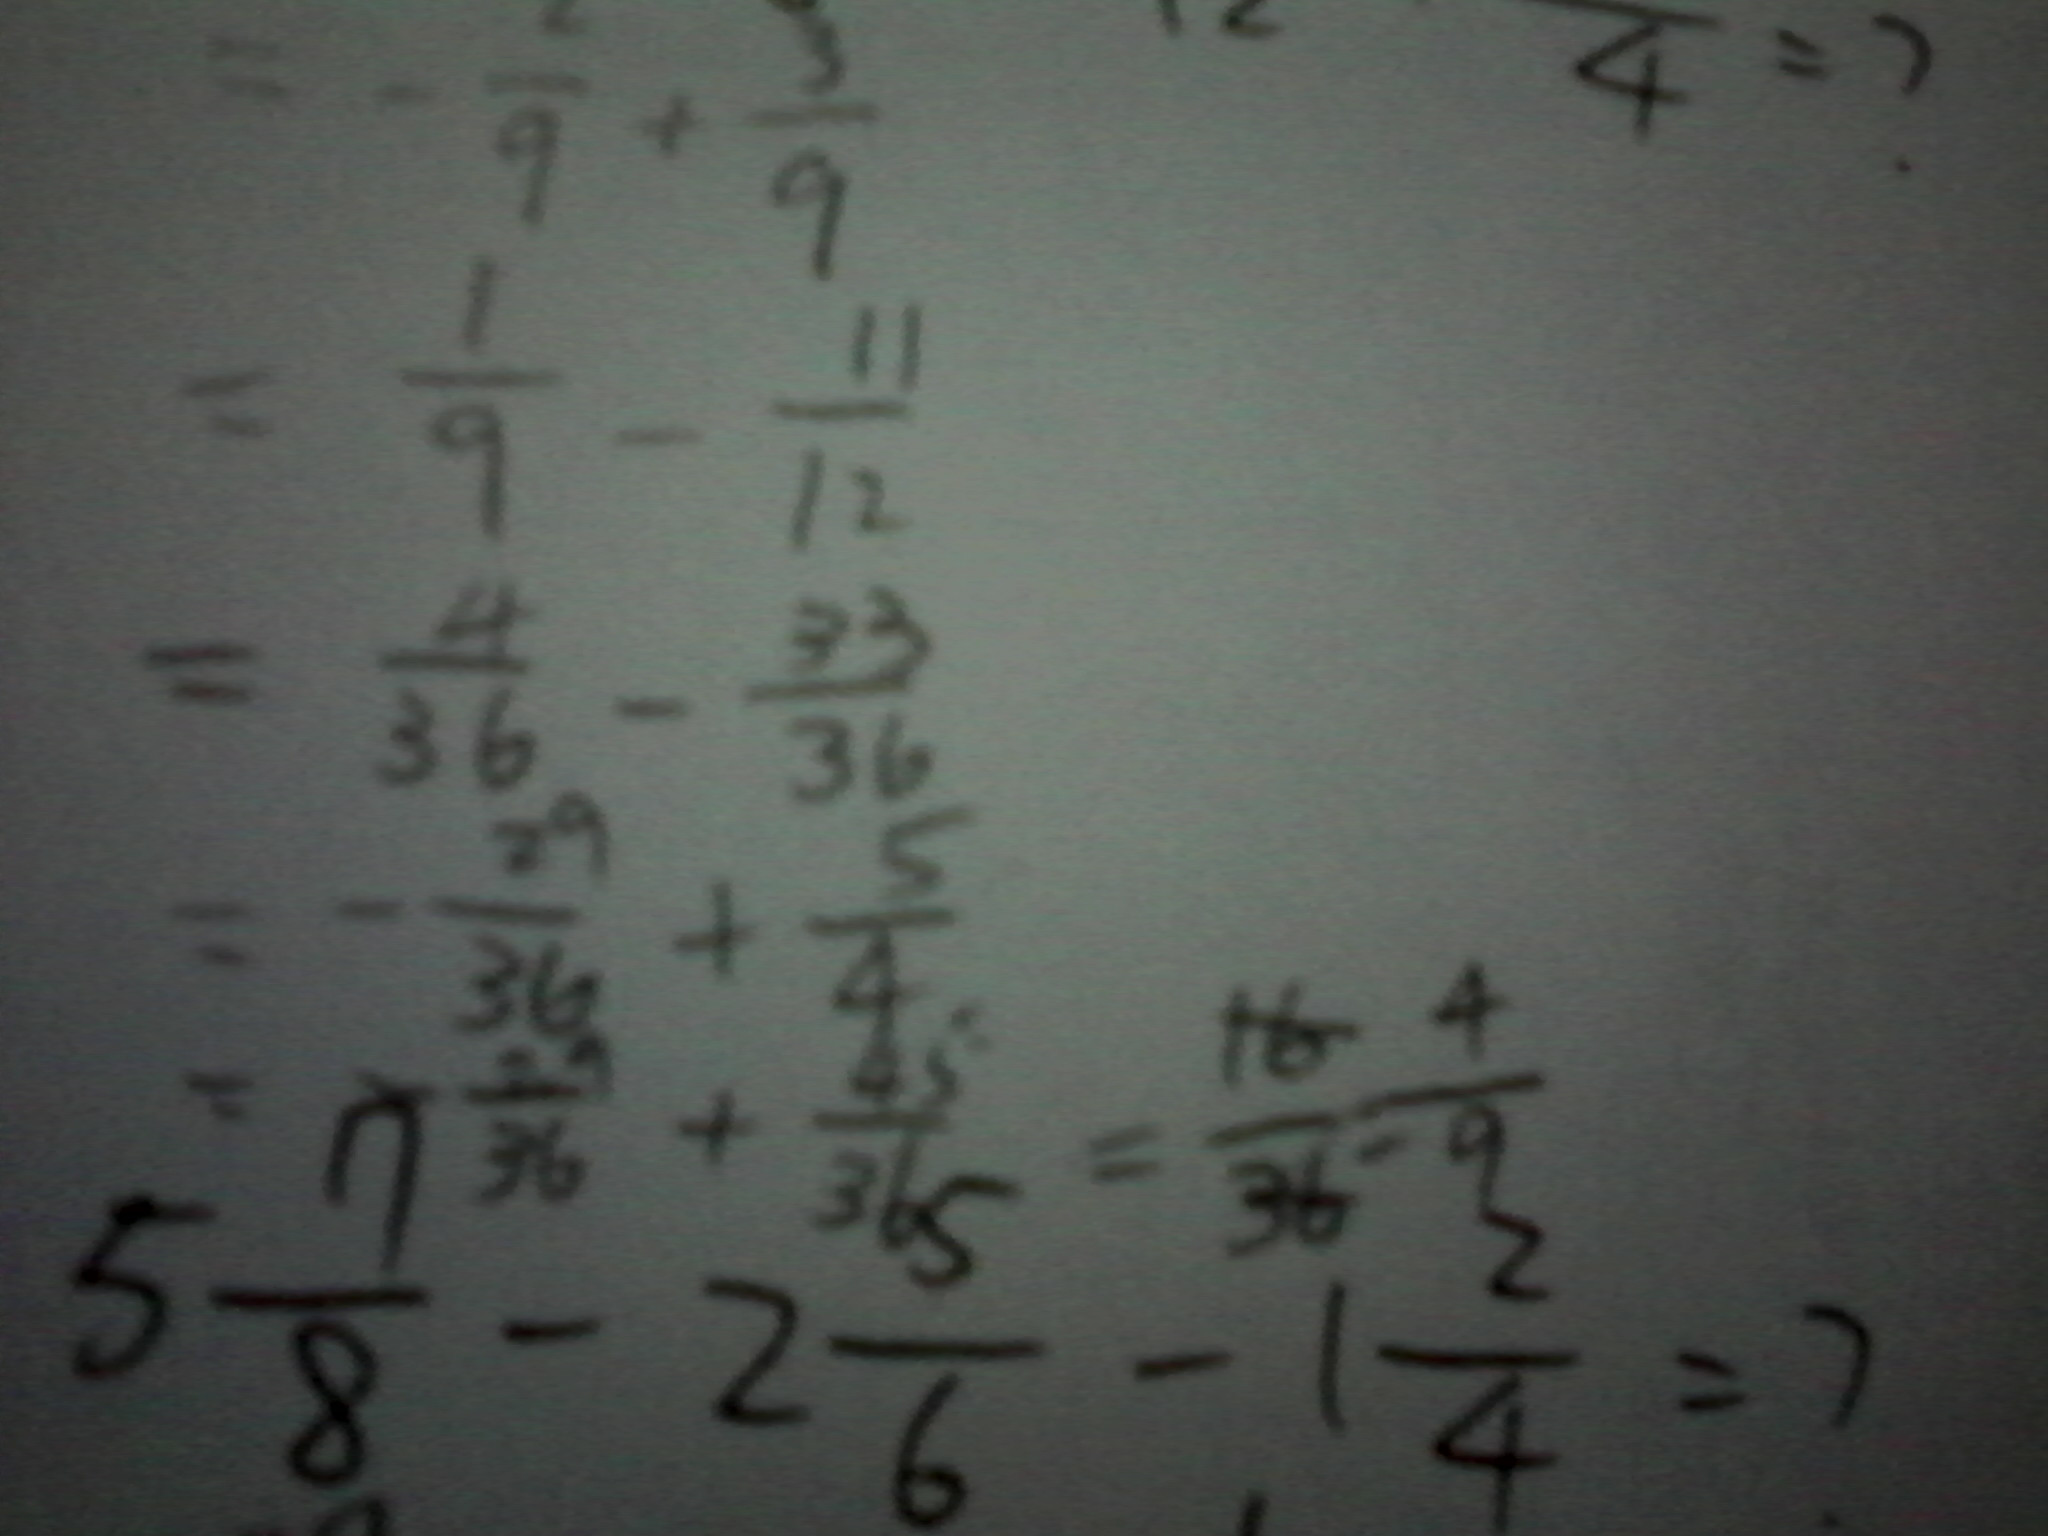 = - 2/9 + 3/9
12 4 = ?
= 1/9 - 11/12
= 4/36 - 33/36
= - 29/36 + 5/4
= - 29/36 + 45/36 = 16/36 = 4/9
5 7/8 - 2 5/6 - 1 2/4 = ?